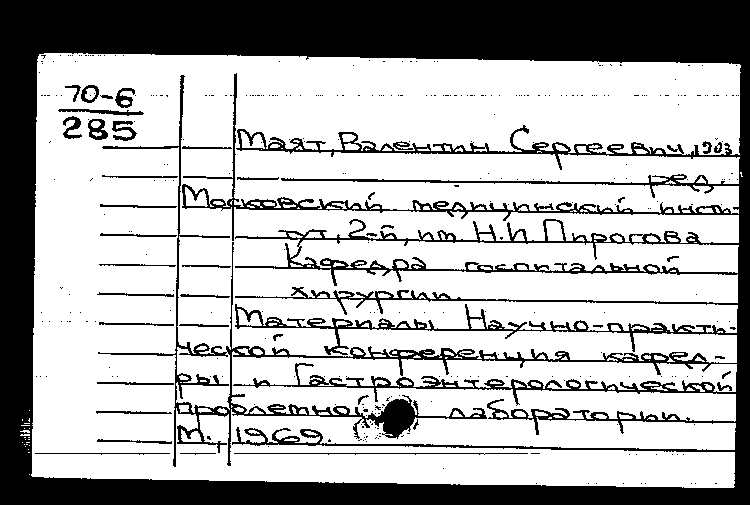 70-6
285
Маят, Валентин Сергеевич, 1903
ред.
Московский медицинский инсти-
тут, 2-й, им Н.И Пирогова
Кафедра госпитальной
хирургии.
Материалы Научно-практи-
ческой конференция кафед-
ры и Гастроэнтерологической
проблемной лаборатории.
М., 1969.